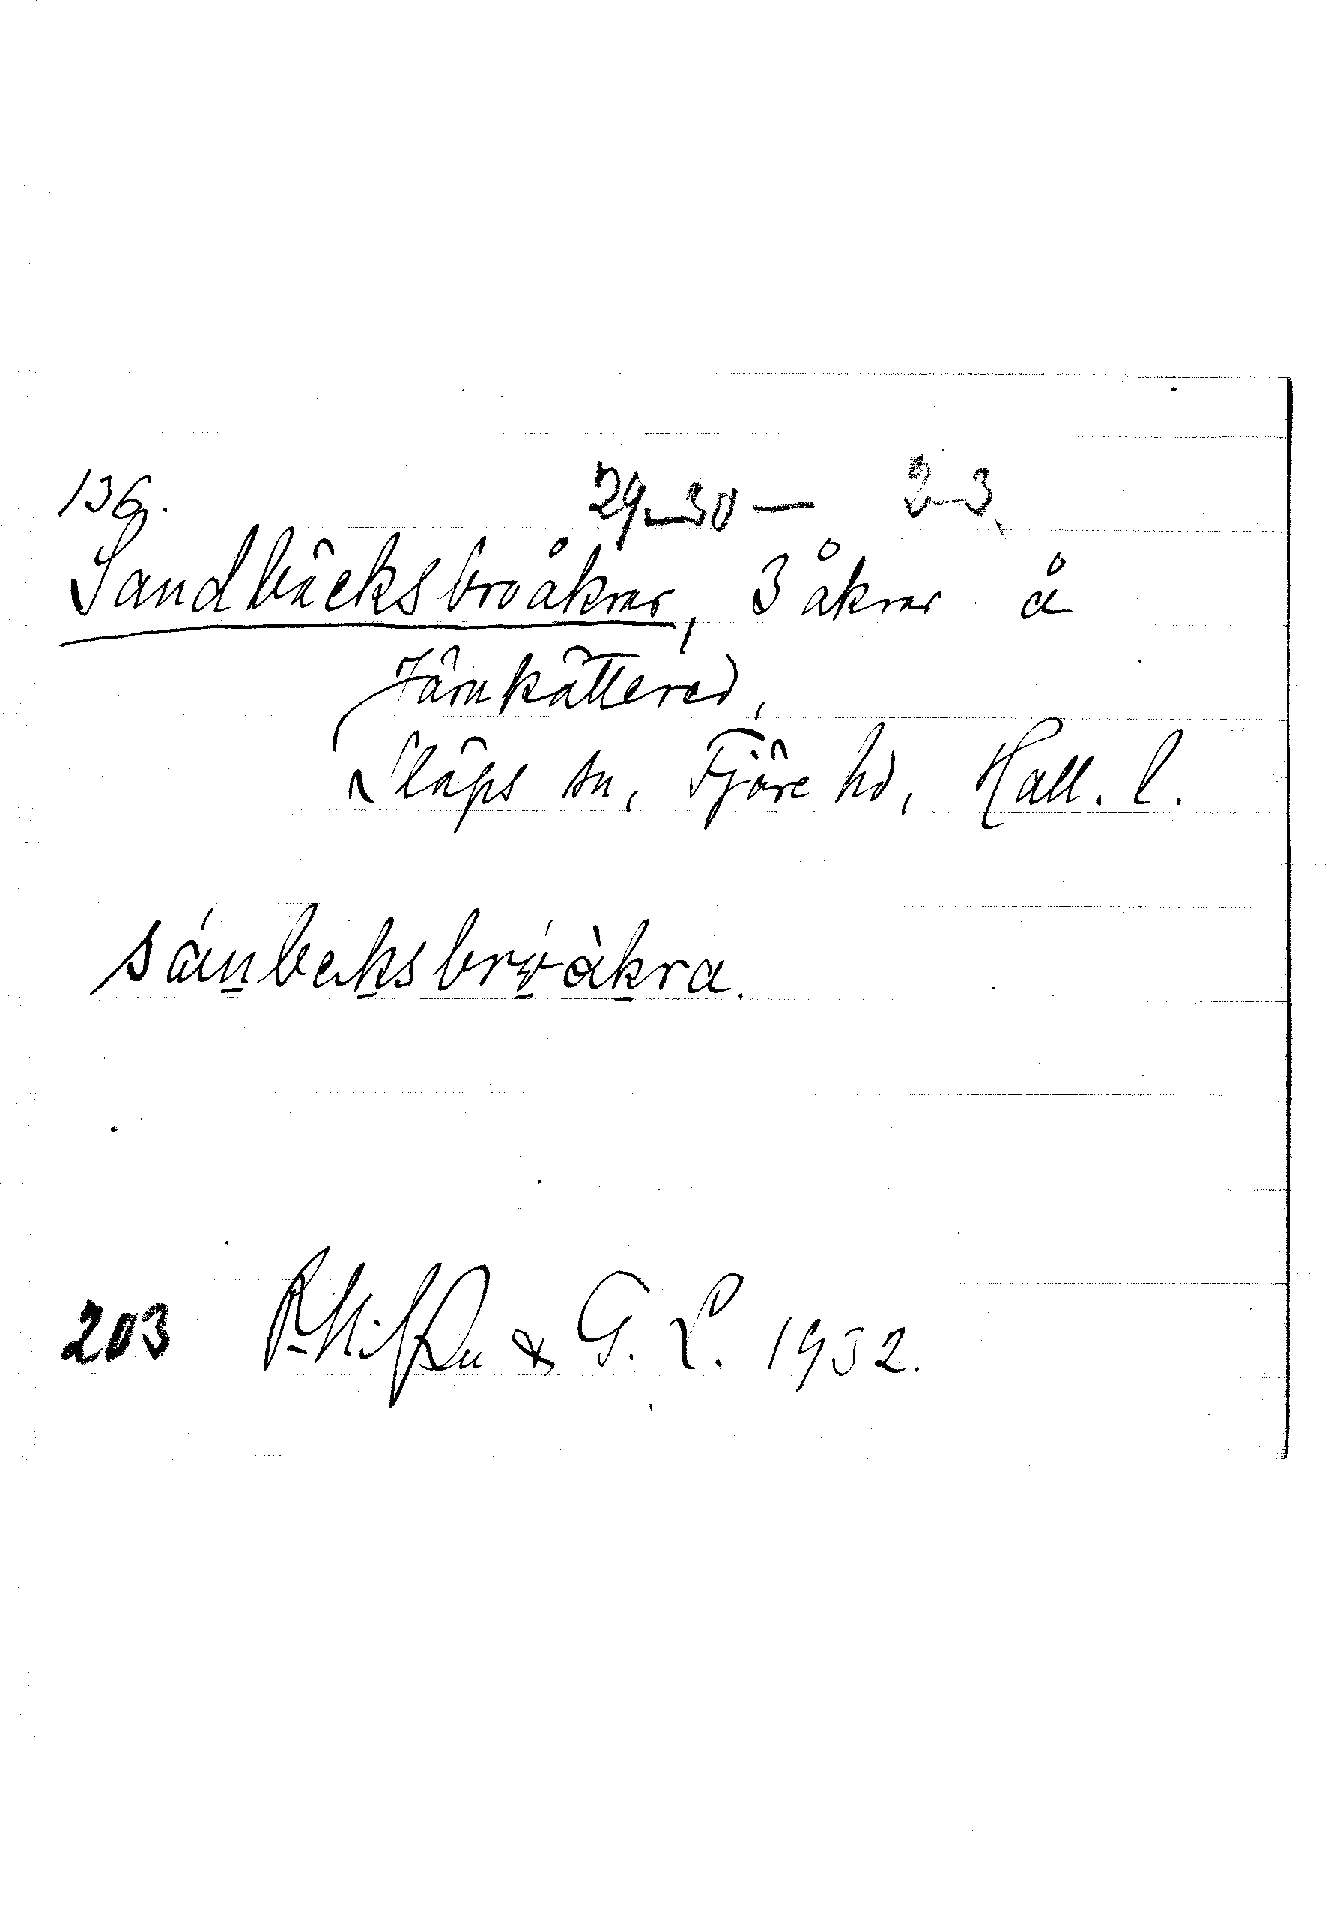 136. 29-30 — 2-3
Sandbäcksbroåkrar, 3 åkrar å
Järnkätterad,
Släps sn, Fjäre hd, Hall. l.
sánbeksbròàkra.
203 & G. L. 1932.